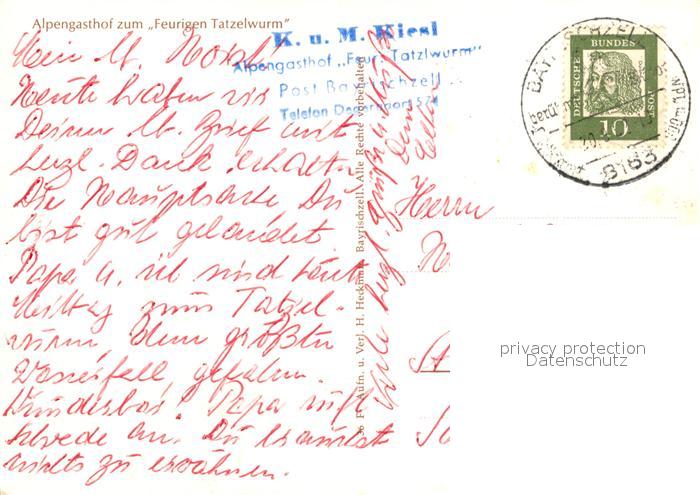 Alpengasthof zum „Feurigen Tatzelwurm"
K. u. M. Kiesl
Alpengasthof „Feur. Tatzlwurm"
Post Bayrischzell
Telefon Degerndorf 574
DEUTSCHE BUNDESPOST
10
8163
Mein lb.
Heute haben wir
Deinen lb. Brief mit
herzl. Dank erhalten
Die Hauptsache Du
bist gut gelandet.
Papa u. ich sind heute
Mittag zum Tatzel-
wurm, dem größten
Wasserfall, gefahren.
Wunderbar! Papa ruft
Du brauchst
nichts zu erwähnen.
Viele herzl. Grüße u. Bussi
Deine
Eltern
Fr. Aufn. u. Verl. H. Heckmair, Bayrischzell. Alle Rechte vorbehalten
Herrn
privacy protection
Datenschutz